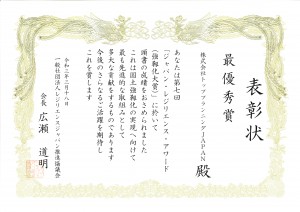 表彰状
最優秀賞
株式会社トッププランニングJAPAN 殿
あなたは第七回
「ジャパン・レジリエンス・アワード
（強靭化大賞）」に於いて
頭書の成績をおさめられました
これは国土強靭化の実現へ向けて
最も先進的な取組みとして
多大な貢献をするものであります
今後のさらなるご活躍を期待し
これを賞します
令和三年三月十八日
一般社団法人レジリエンスジャパン推進協議会
会長 広瀬 道明